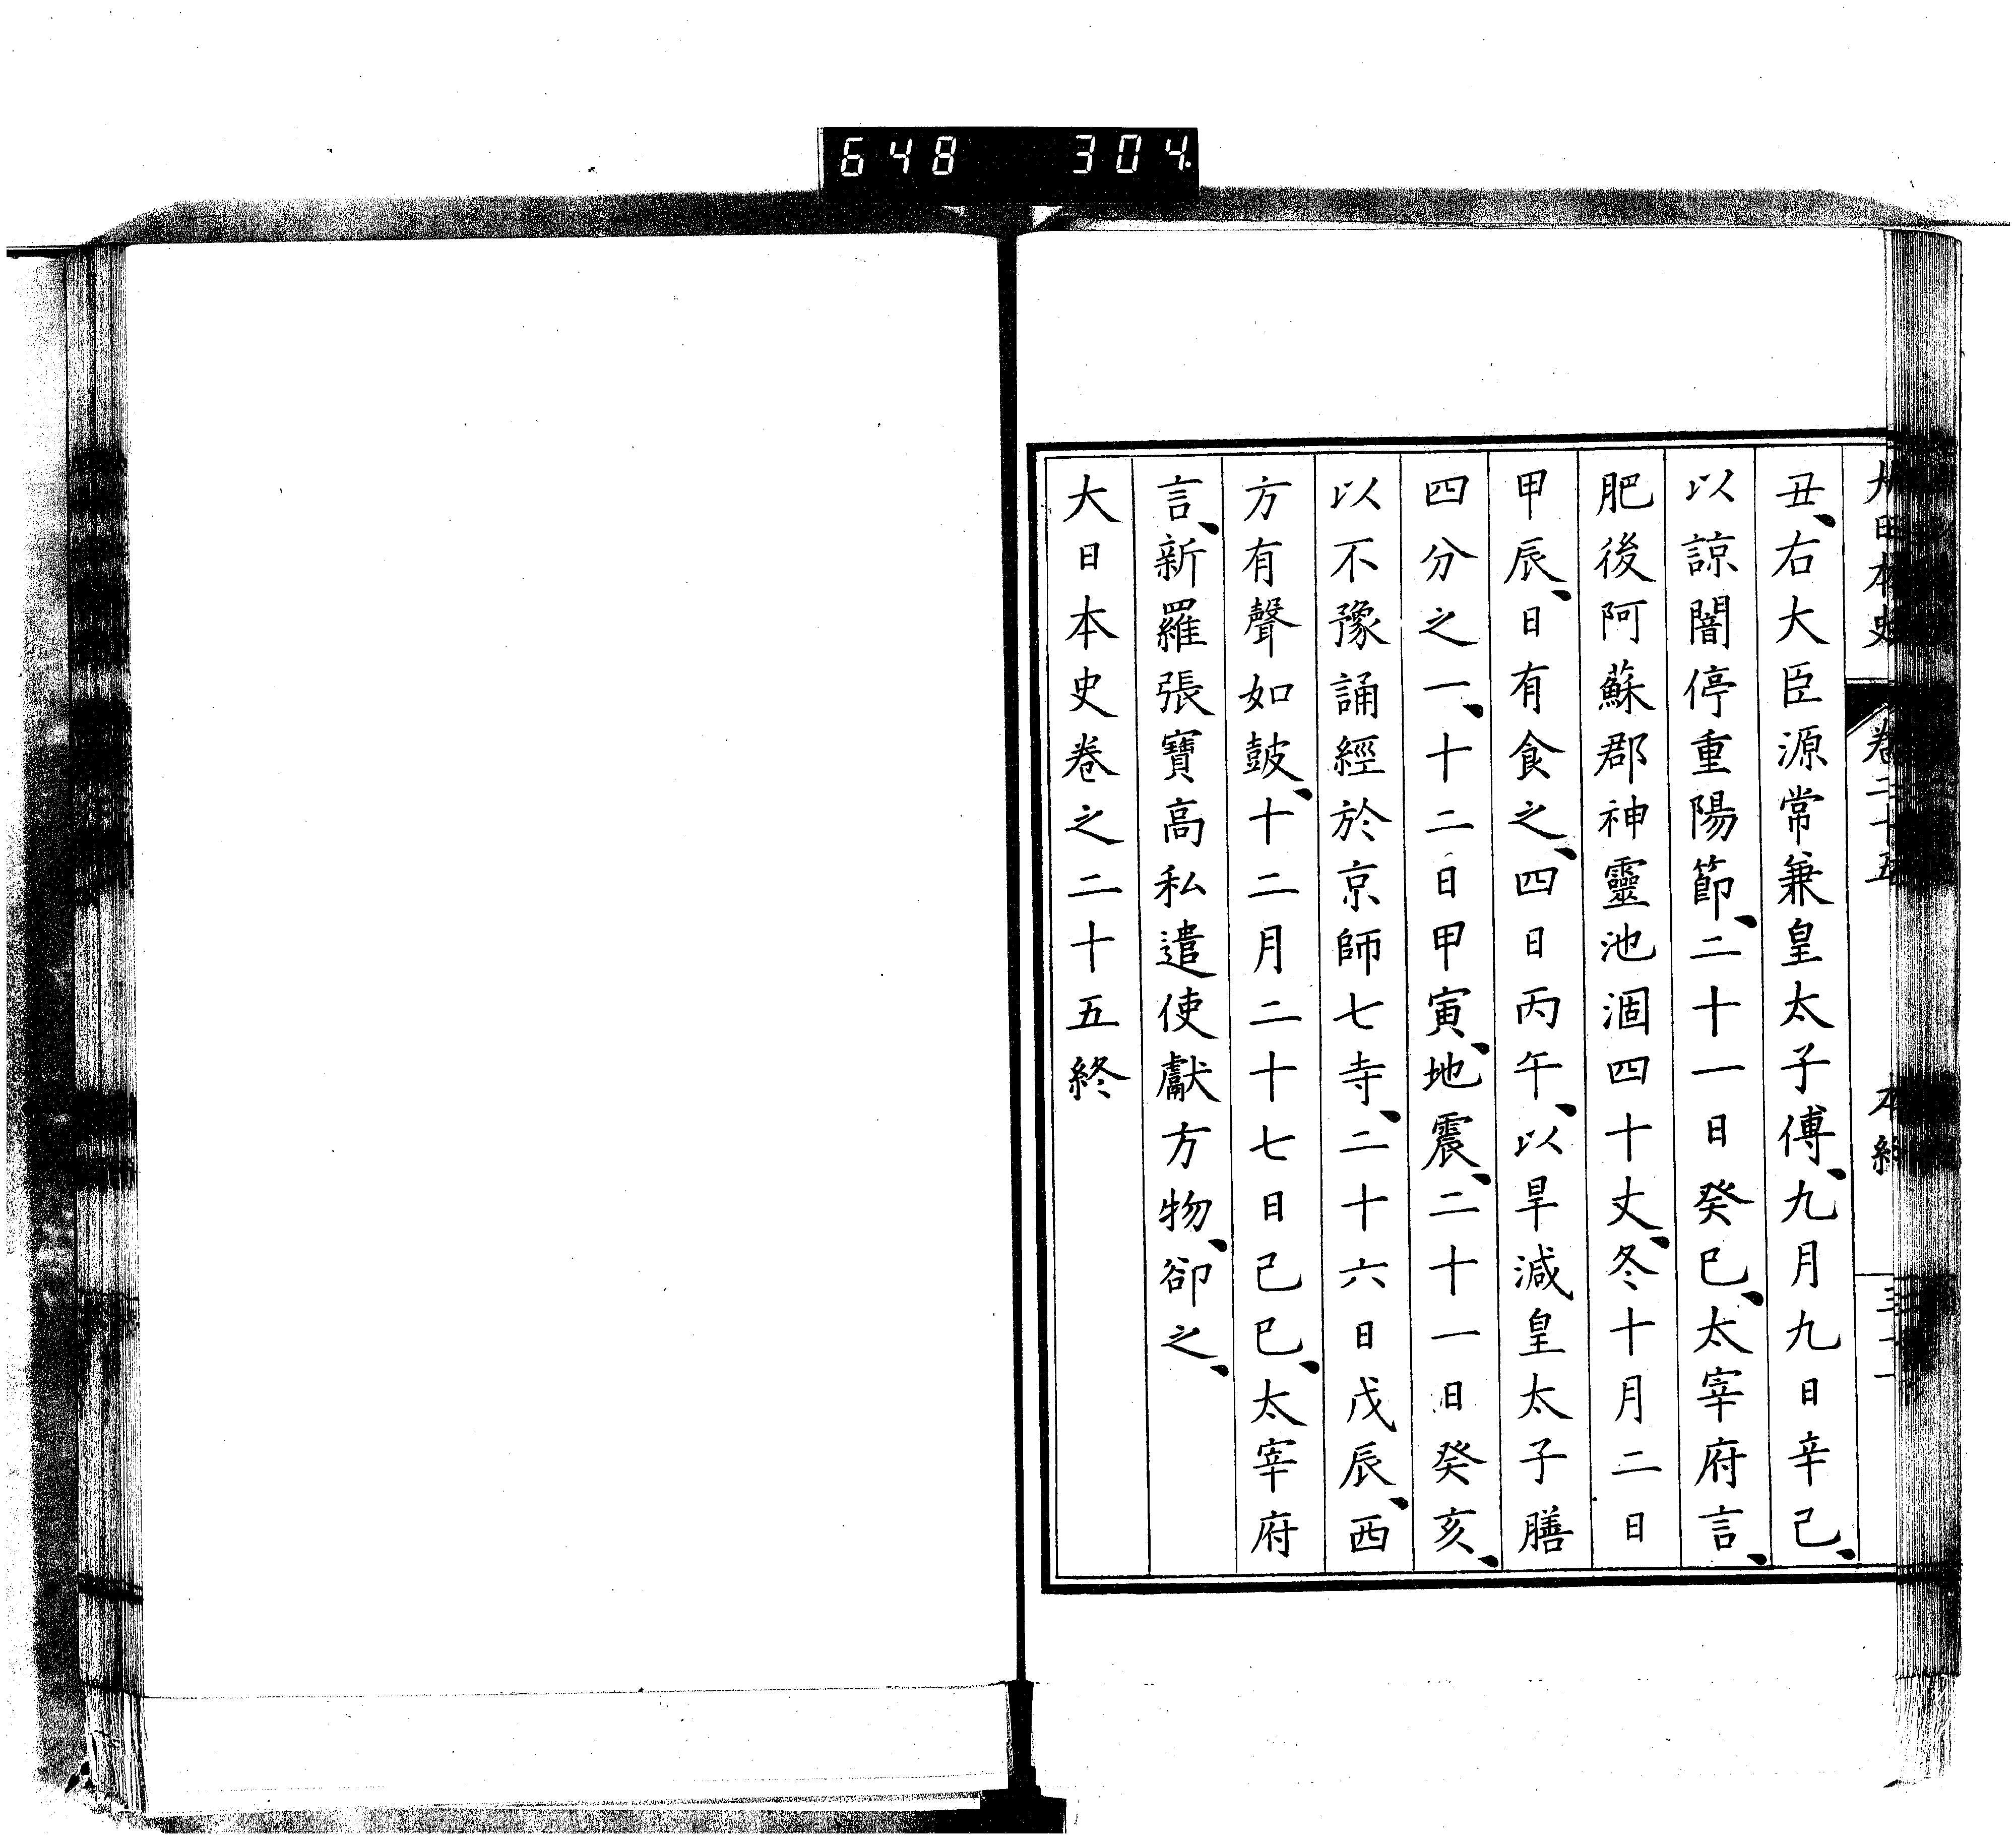 648 304
丑、右大臣源常兼皇太子傅、九月九日辛己、
以諒闇停重陽節、二十一日癸巳、太宰府言、
肥後阿蘇郡神靈池涸四十丈、冬十月二日
甲辰、日有食之、四日丙午、以旱減皇太子膳
四分之一、十二日甲寅、地震、二十一日癸亥、
以不豫誦經於京師七寺、二十六日戊辰、西
方有聲如鼓、十二月二十七日己巳、太宰府
言、新羅張寶高私遣使獻方物、卻之、
大日本史卷之二十五終